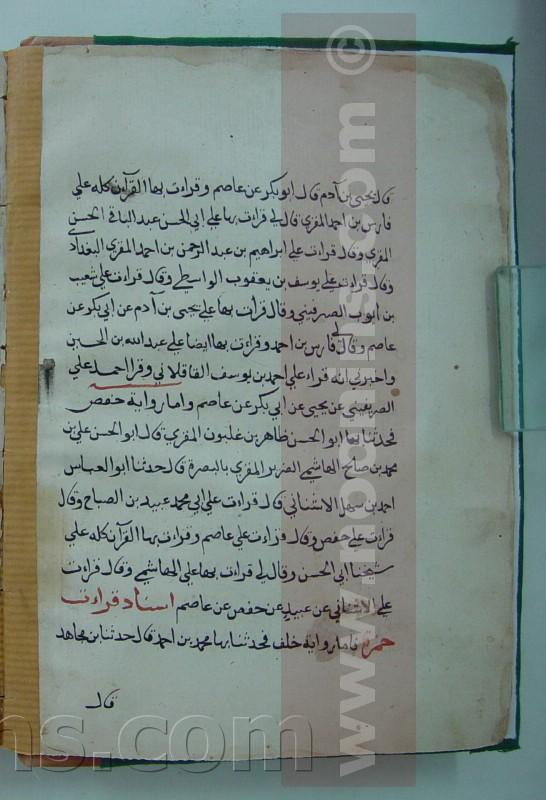 قال يحيى بن آدم قال ابو بكر عن عاصم وقراءت بها القرآن كله علي
فارس بن احمد المقري قال لي قراءت بها علي ابي الحسن عبد الباقي الحسن
المقري وقال قراءت علي ابراهيم بن عبد الرحمن بن احمد المقري البغداد
وقال قراءت علي يوسف بن يعقوب الواسطي وقال قراءت علي شعيب
بن ايوب الصريفيني وقال قرات بها علي يحيى بن آدم عن ابي بكر عن
عاصم وقال لي فارس بن احمد وقراءت بها ايضا علي عبد الله بن الحسين
واخبرني انه قراء علي احمد بن يوسف القافلاني وقرا احمد علي
الصريفيني عن يحيى عن ابي بكر عن عاصم واما رواية حفص
فحدثنا بها ابو الحسن طاهر بن غلبون المقري قال ابو الحسن علي بن
محمد بن صالح الهاشمي الضرير المقري بالبصرة قال حدثنا ابو العباس
احمد بن سهل الاشناني قال قراءت علي ابي محمد عبيد بن الصباح وقال
قراءت علي حفص وقال قراءت علي عاصم وقراءت بها القرآن كله علي
شيخنا ابي الحسن وقال لي قراءت بها علي الهاشمي وقال قراءت
علي الاشناني عن عبيد عن حفص عن عاصم اسناد قراءت
حمزة فاما رواية خلف فحدثنا بها محمد بن احمد قال حدثنا بن مجاهد
قال